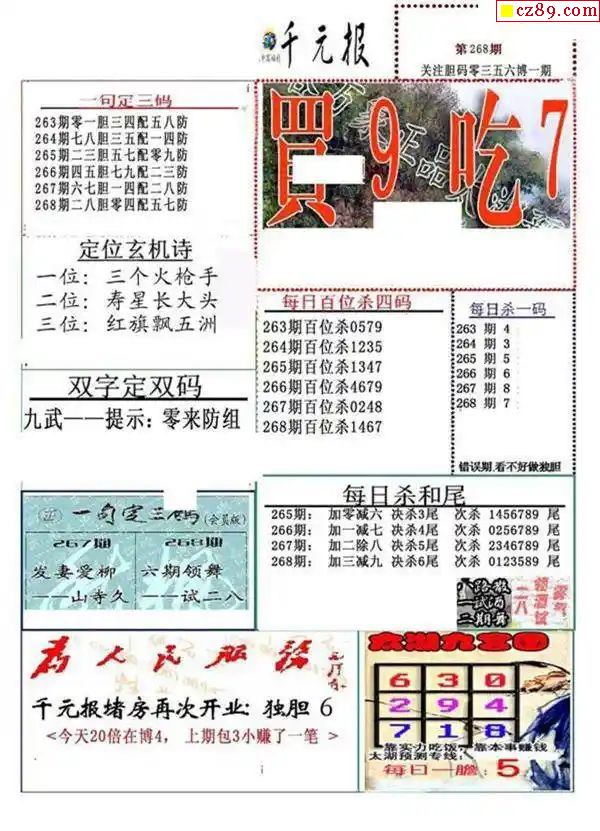 cz89.com
千元报
第268期
关注胆码零三五六博一期
一句定三码
263期零一胆三四配五八防
264期七八胆三五配一四防
265期二三胆五七配零九防
266期四五胆七九配二三防
267期六七胆一四配二八防
268期二八胆零四配五七防
買9吃7
定位玄机诗
一位：三个火枪手
二位：寿星长大头
三位：红旗飘五洲
每日百位杀四码
263期百位杀0579
264期百位杀1235
265期百位杀1347
266期百位杀4679
267期百位杀0248
268期百位杀1467
每日杀一码
263 期 4
264 期 3
265 期 5
266 期 6
267 期 8
268 期 7
错误期,看不好做独胆
双字定双码
九武——提示：零来防组
一句定三码(会员版)
267期
发妻爱柳
——山寺久
268期
六期领舞
——试二八
每日杀和尾
265期： 加零减六 决杀3尾 次杀 1456789 尾
266期： 加一减七 决杀4尾 次杀 0256789 尾
267期： 加二除八 决杀5尾 次杀 2346789 尾
268期： 加三减九 决杀6尾 次杀 0123589 尾
为人民服务
千元报堵房再次开业：独胆 6
<今天20倍在博4， 上期包3小赚了一笔>
太湖九宫图
6 3 0
2 9 4
7 1 8
靠实力吃饭，靠本事赚钱
太湖预测专线：
每日一胆：5